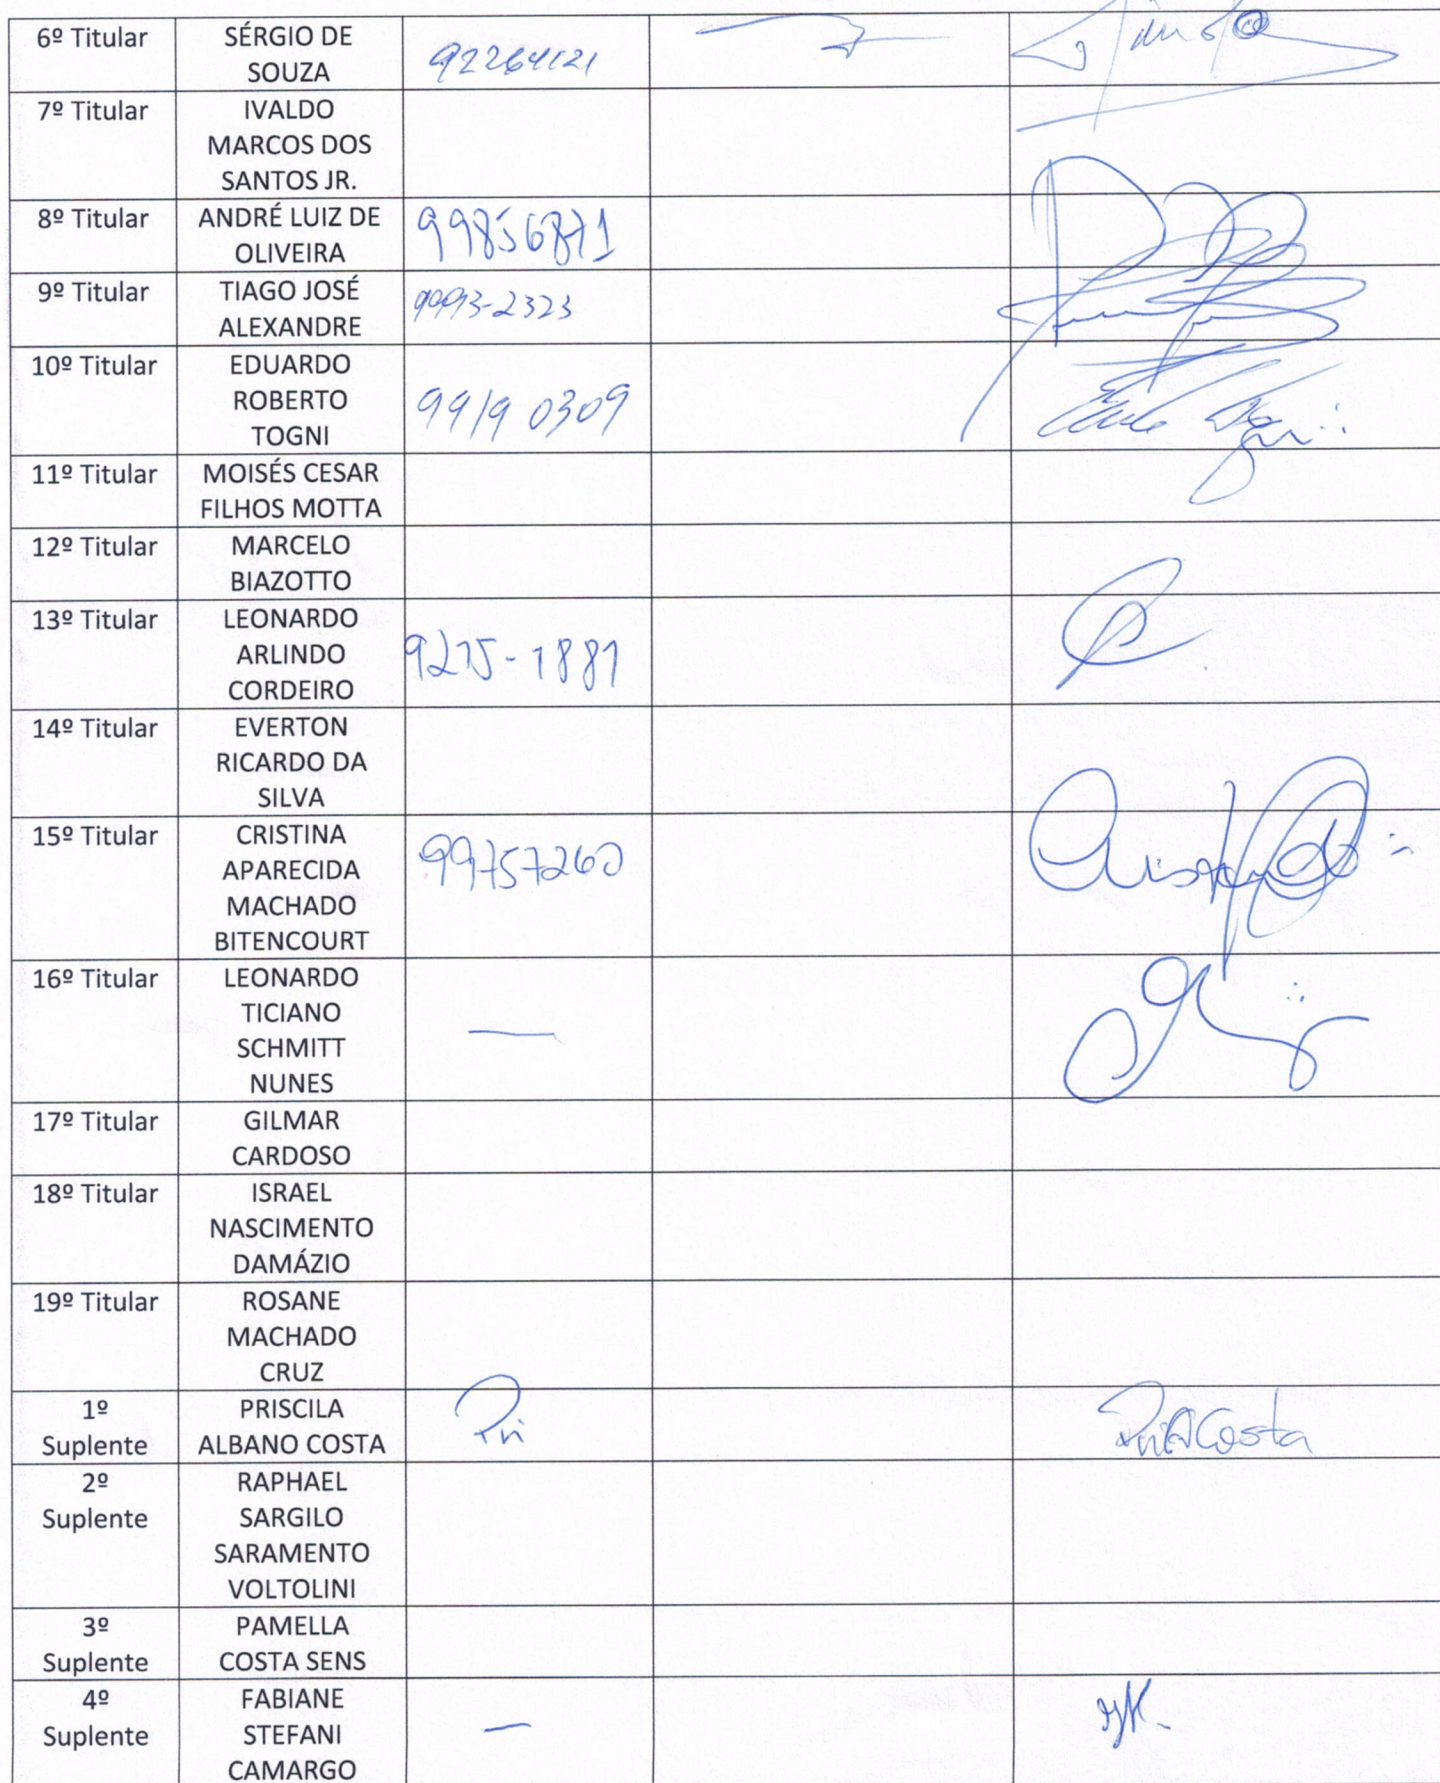 6º Titular
SÉRGIO DE
SOUZA
92264121
7º Titular
IVALDO
MARCOS DOS
SANTOS JR.
8º Titular
ANDRÉ LUIZ DE
OLIVEIRA
99856871
9º Titular
TIAGO JOSÉ
ALEXANDRE
9993-2323
10º Titular
EDUARDO
ROBERTO
TOGNI
9919 0309
11º Titular
MOISÉS CESAR
FILHOS MOTTA
12º Titular
MARCELO
BIAZOTTO
13º Titular
LEONARDO
ARLINDO
CORDEIRO
9215-1881
14º Titular
EVERTON
RICARDO DA
SILVA
15º Titular
CRISTINA
APARECIDA
MACHADO
BITENCOURT
99757260
16º Titular
LEONARDO
TICIANO
SCHMITT
NUNES
17º Titular
GILMAR
CARDOSO
18º Titular
ISRAEL
NASCIMENTO
DAMÁZIO
19º Titular
ROSANE
MACHADO
CRUZ
1º
Suplente
PRISCILA
ALBANO COSTA
Pri
PriACosta
2º
Suplente
RAPHAEL
SARGILO
SARAMENTO
VOLTOLINI
3º
Suplente
PAMELLA
COSTA SENS
4º
Suplente
FABIANE
STEFANI
CAMARGO